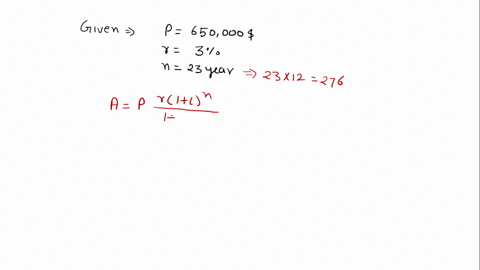 Given ⇒ P = 650,000 $
r = 3%
n = 23 year ⇒ 23 × 12 = 276
A = P r(1+i)^n / 1+